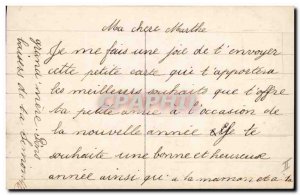 Ma chere Marthe
Je me fais une joie de t'envoyer
cette petite carte qui t'apportera
les meilleures souhaits que t'offre
ta petite amie a l'occasion de
la nouvelle année Je te
souhaite une bonne et heureuse
année ainsi qu'a ta maman et a ta
grand mère
baisers de ta
CPA